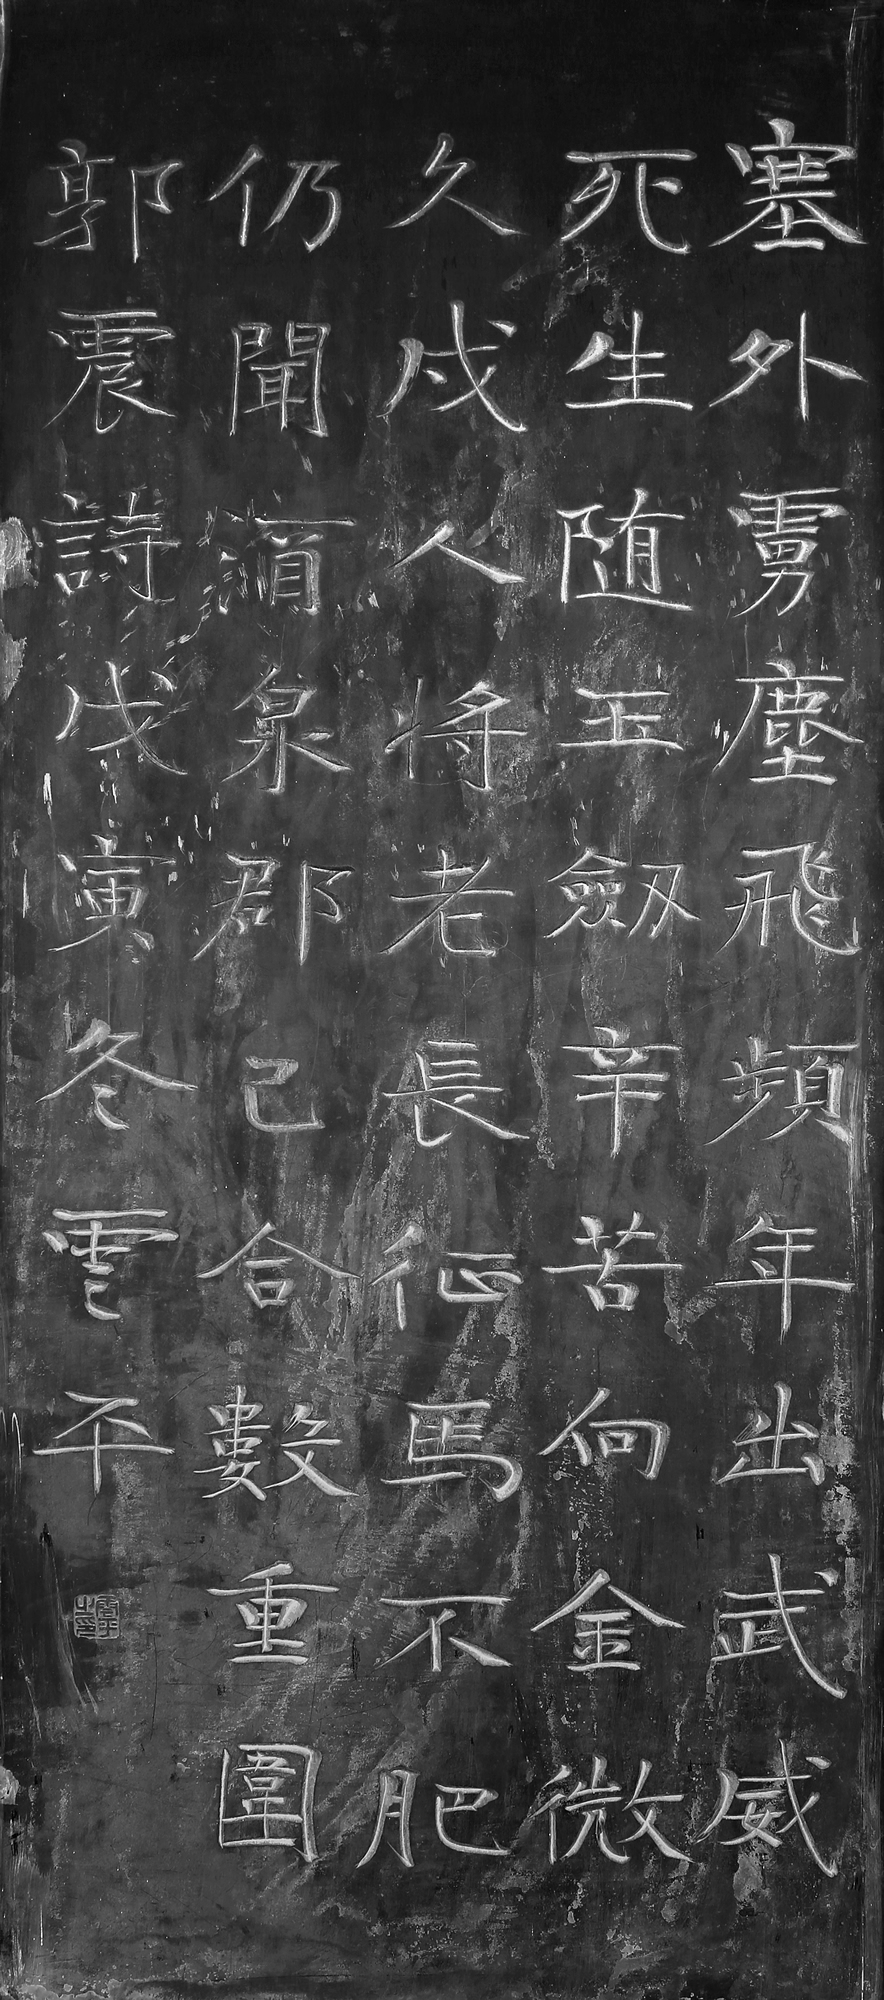 塞外虜塵飛頻年出武威
死生随玉劔辛苦向金微
久戍人将老長征馬不肥
仍聞酒泉郡已合數重圍
郭震詩戊寅冬雲平